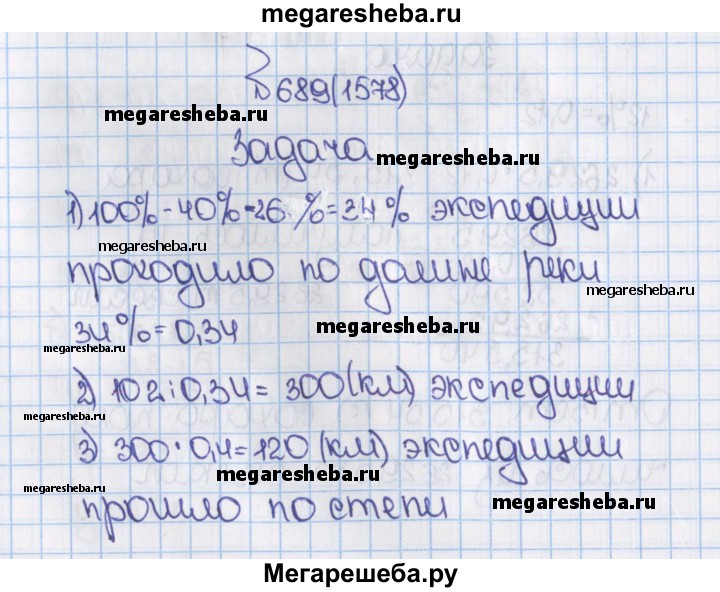 megaresheba.ru
689(1578)
megaresheba.ru
Задача
megaresheba.ru
1) 100%-40%-26%=34% экспедиции
megaresheba.ru
проходило по долине реки
megaresheba.ru
34%=0,34
megaresheba.ru
megaresheba.ru
2) 102:0,34=300(км) экспедиции
megaresheba.ru
3) 300·0,4=120(км) экспедиции
megaresheba.ru
megaresheba.ru
прошло по степи
megaresheba.ru
Мегарешеба.ру